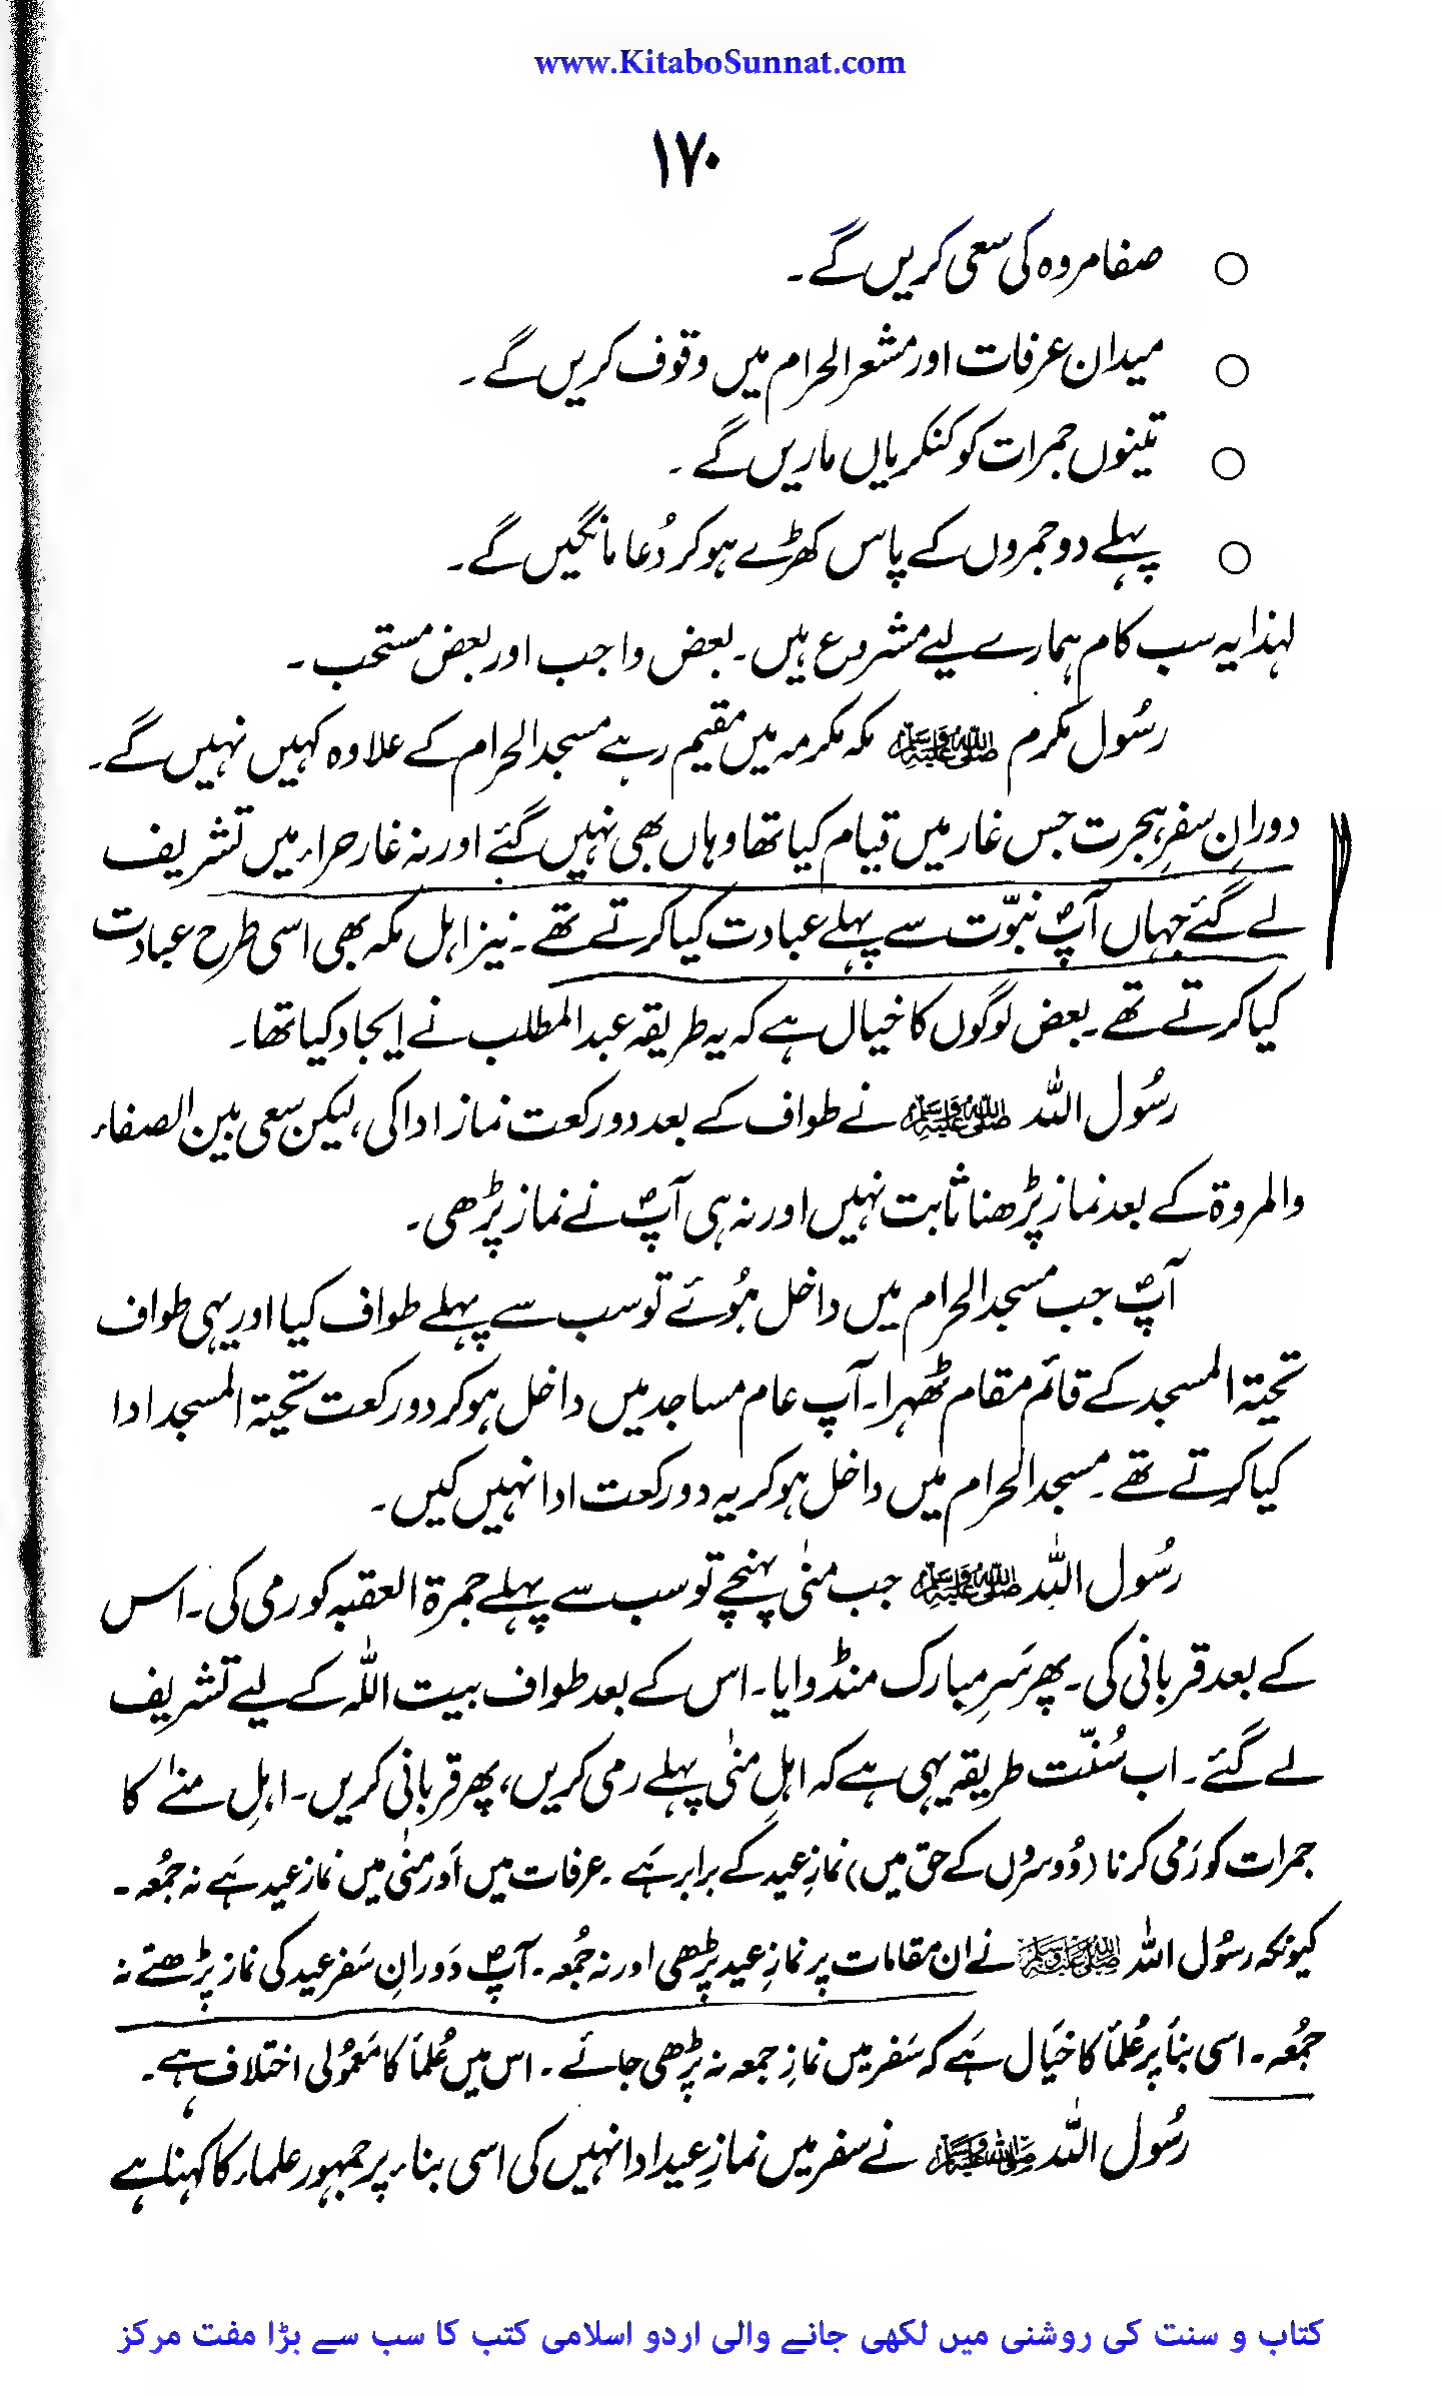 www.KitaboSunnat.com
۱۷۰
○ صفا مروہ کی سعی کریں گے۔
○ میدان عرفات اور مشعر الحرام میں وقوف کریں گے۔
○ تینوں جمرات کو کنکریاں ماریں گے۔
○ پہلے دو جمروں کے پاس کھڑے ہو کر دُعا مانگیں گے۔
لہذا یہ سب کام ہمارے لیے مشروع ہیں۔ بعض واجب اور بعض مستحب۔
رسُول مکرم ﷺ مکہ مکرمہ میں مقیم رہے مسجد الحرام کے علاوہ کہیں نہیں گے۔
دورانِ سفرِ ہجرت جس غار میں قیام کیا تھا وہاں بھی نہیں گئے اور نہ غار حراء میں تشریف
لے گئے جہاں آپؐ نبوّت سے پہلے عبادت کیا کرتے تھے۔ نیز اہل مکہ بھی اسی طرح عبادت
کیا کرتے تھے۔ بعض لوگوں کا خیال ہے کہ یہ طریقہ عبد المطلب نے ایجاد کیا تھا۔
رسُول اللہ ﷺ نے طواف کے بعد دو رکعت نماز ادا کی، لیکن سعی بین الصفاء
والمروۃ کے بعد نماز پڑھنا ثابت نہیں اور نہ ہی آپؐ نے نماز پڑھی۔
آپؐ جب مسجد الحرام میں داخل ہُوئے تو سب سے پہلے طواف کیا اور یہی طواف
تحیۃ المسجد کے قائم مقام ٹھہرا۔ آپ عام مساجد میں داخل ہو کر دو رکعت تحیۃ المسجد ادا
کیا کرتے تھے۔ مسجد الحرام میں داخل ہو کر یہ دو رکعت ادا نہیں کیں۔
رسُول اللہ ﷺ جب منیٰ پہنچے تو سب سے پہلے جمرۃ العقبہ کو رمی کی۔ اس
کے بعد قربانی کی۔ پھر سَرِ مبارک منڈوایا۔ اس کے بعد طواف بیت اللہ کے لیے تشریف
لے گئے۔ اب سُنّت طریقہ یہی ہے کہ اہلِ منیٰ پہلے رمی کریں، پھر قربانی کریں۔ اہلِ منےٰ کا
جمرات کو رَمی کرنا (دُوسروں کے حق میں) نمازِ عید کے برابر ہَے۔ عرفات میں اَور منیٰ میں نماز عید ہَے نہ جمُعہ۔
کیونکہ رسُول اللہ ﷺ نے ان مقامات پر نمازِ عید پڑھی اور نہ جمُعہ۔ آپؐ دَورانِ سَفر عید کی نماز پڑھتے نہ
جمُعہ۔ اسی بنأ پر عُلمأ کا خیَال ہَے کہ سَفر میں نمازِ جمعہ نہ پڑھی جائے۔ اس میں عُلمأ کا مَعمُولی اختلاف ہے۔
رسُول اللہ ﷺ نے سفر میں نمازِ عید ادا نہیں کی اسی بناء پر جمہور علماء کا کہنا ہے
کتاب و سنت کی روشنی میں لکھی جانے والی اردو اسلامی کتب کا سب سے بڑا مفت مرکز